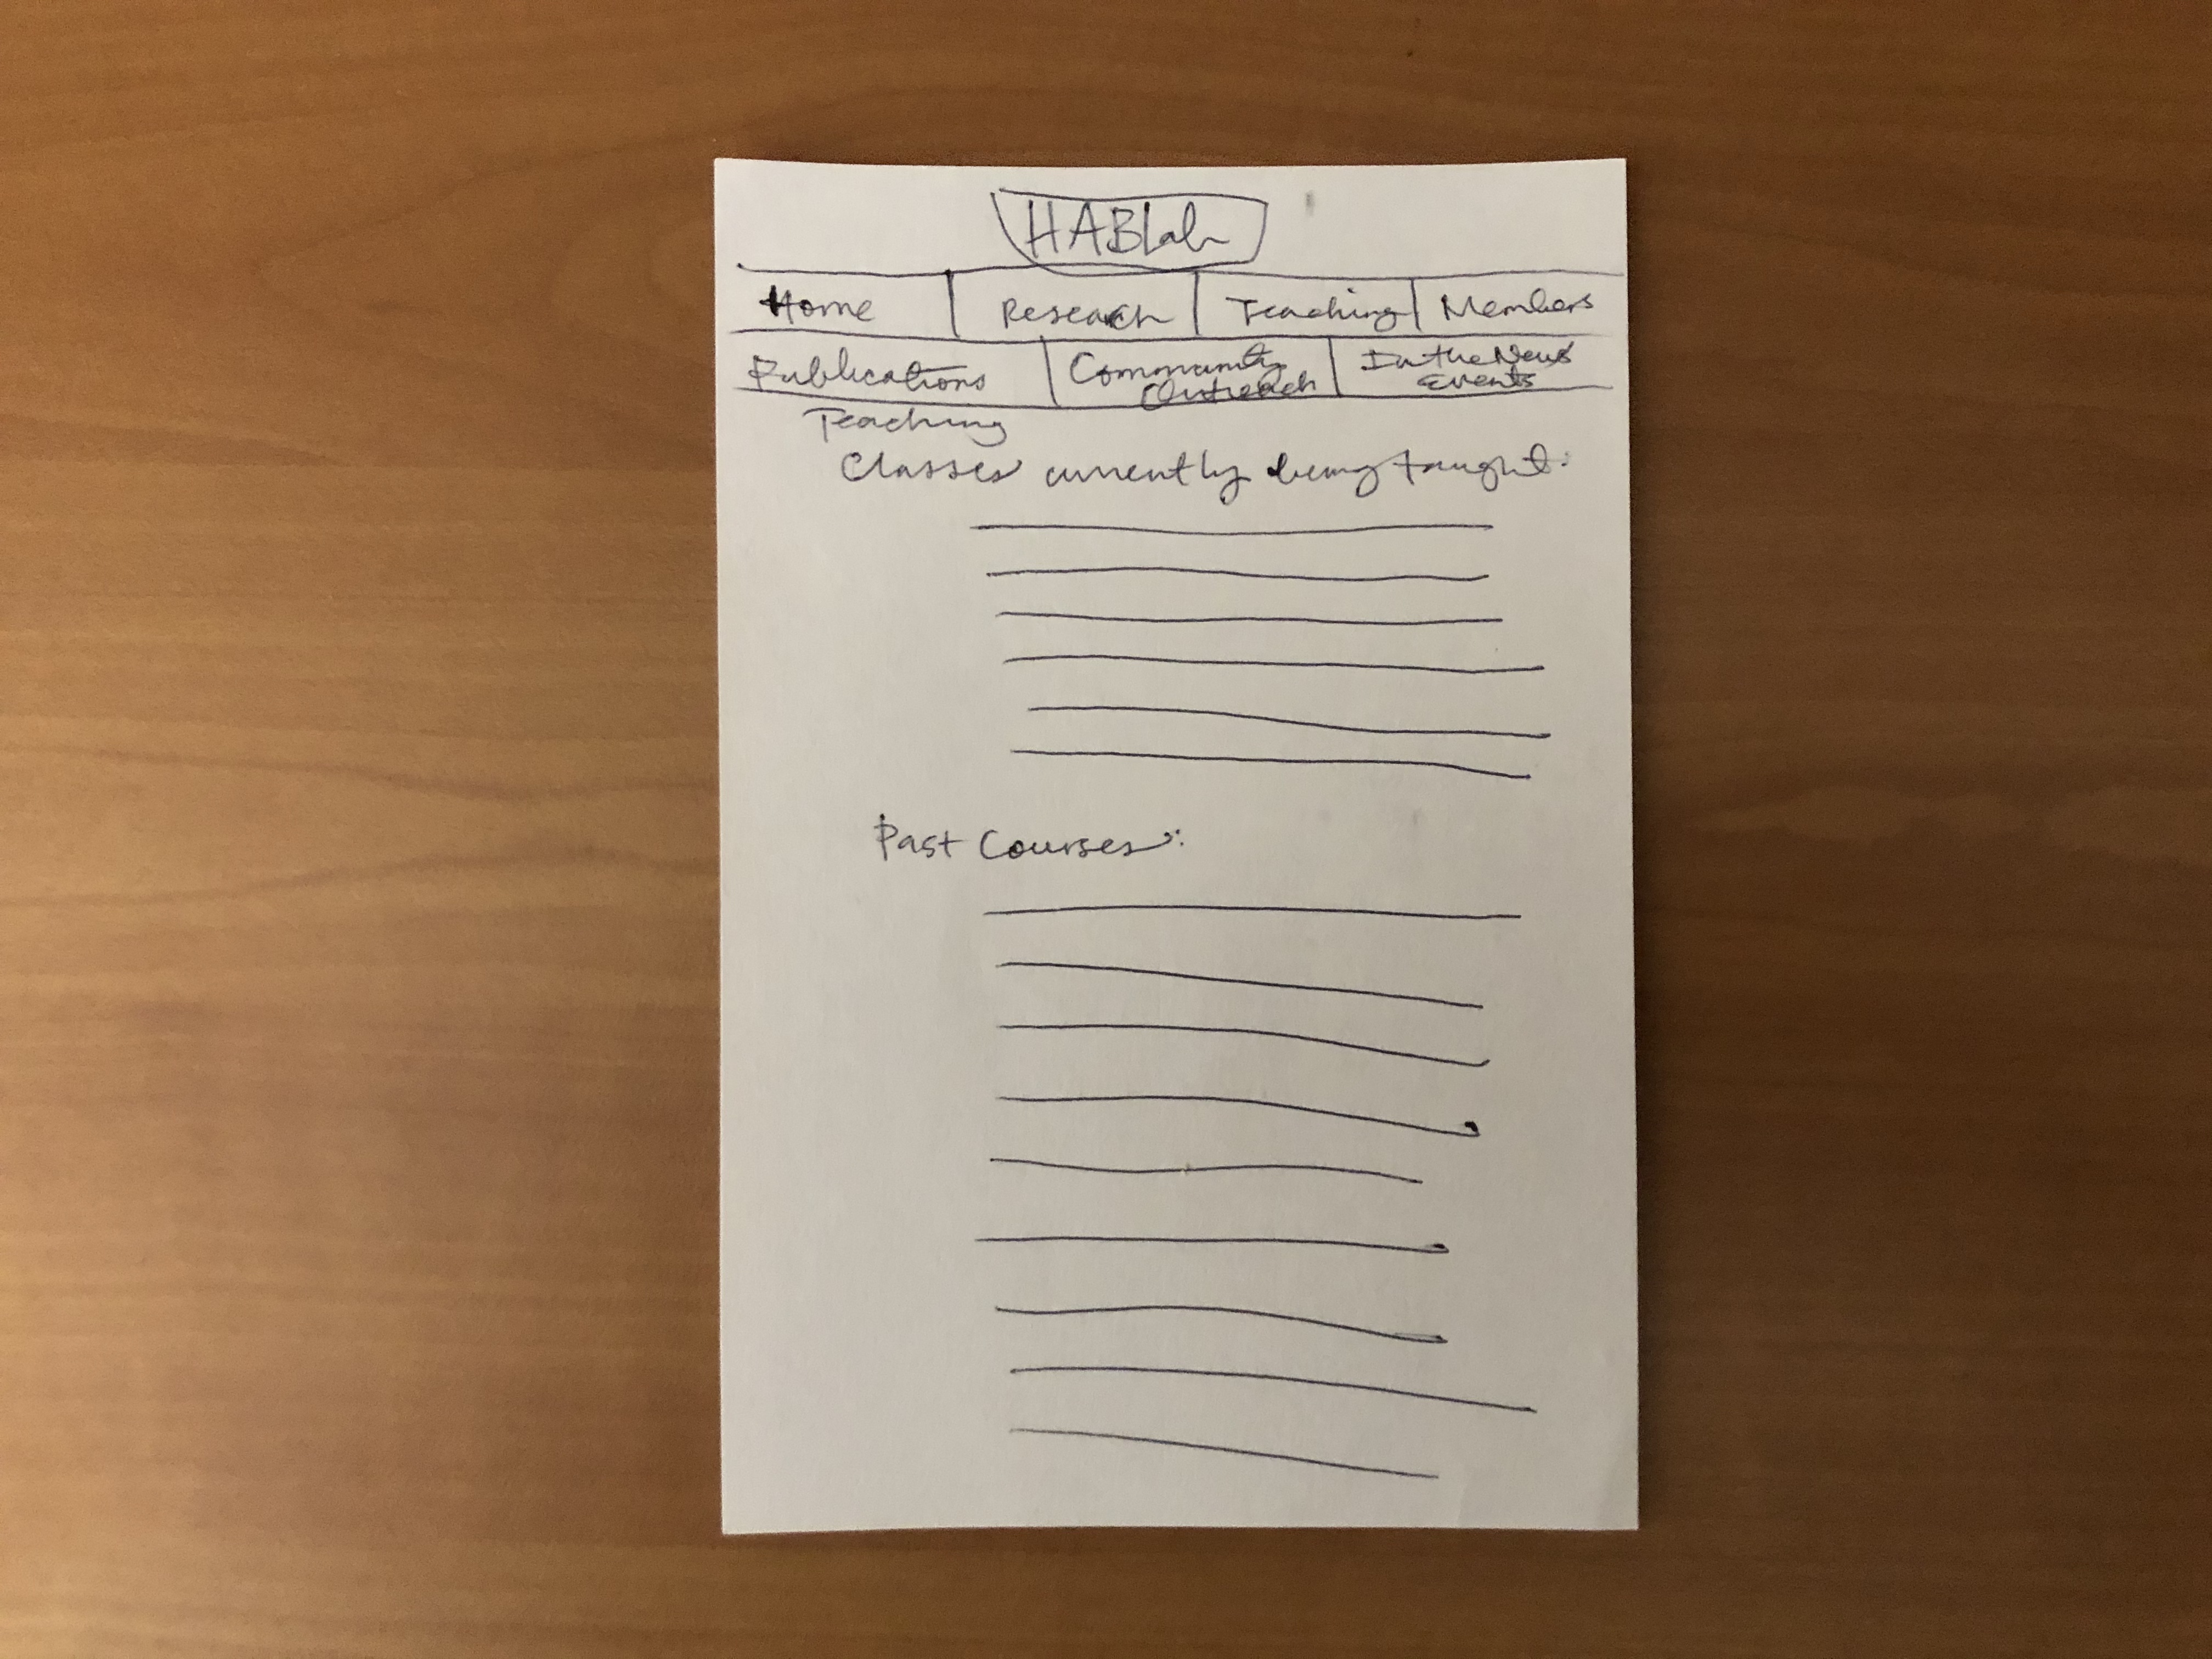 HABLab
Home Research Teaching Members
Publications Community Outreach In the News Events
Teaching
Classes currently being taught:
Past Courses: